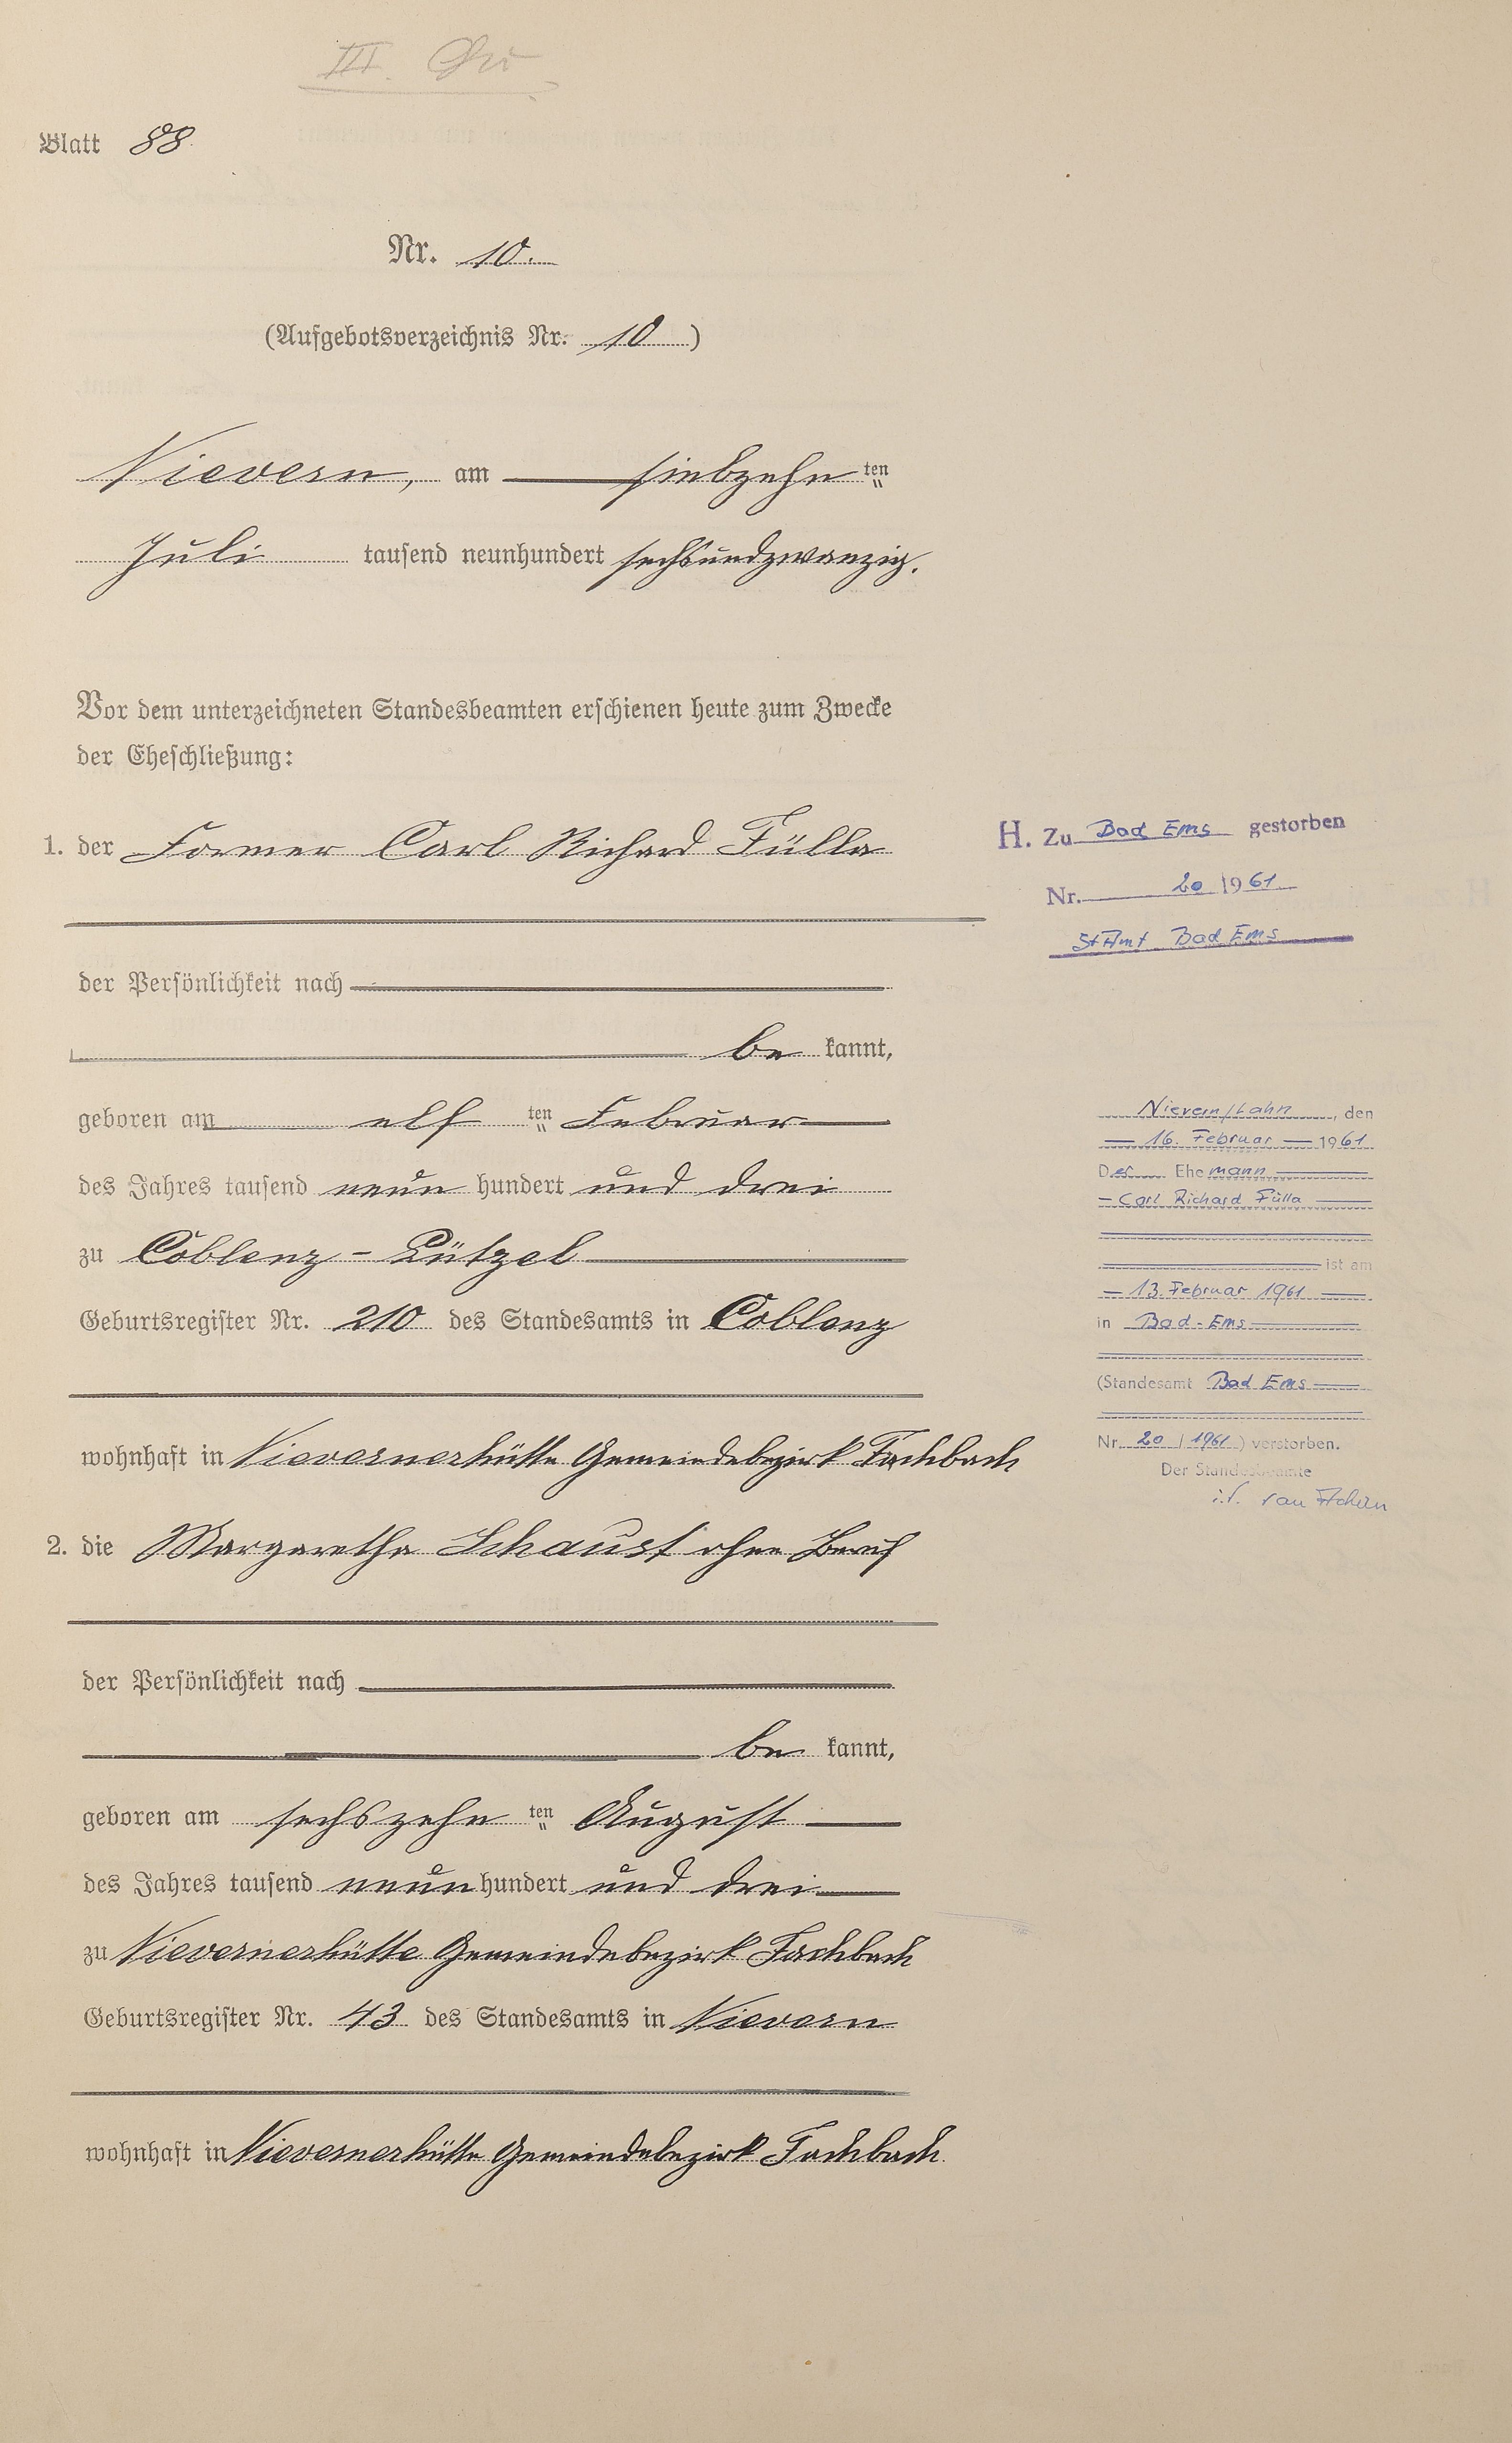 III.
Blatt 88
Nr. 10.
(Aufgebotsverzeichnis Nr. 10)
Nievern, am siebzehn ten
Juli tausend neunhundert sechsundzwanzig.
Vor dem unterzeichneten Standesbeamten erschienen heute zum Zwecke
der Eheschließung:
1. der Former Carl Richard Fülla
der Persönlichkeit nach
be kannt,
geboren am elf ten Februar
des Jahres tausend neun hundert und drei
zu Coblenz - Lützel
Geburtsregister Nr. 210 des Standesamts in Coblenz
wohnhaft in Nievernerhütte Gemeindebezirk Fachbach
2. die Margaretha Schaust ohne Beruf
der Persönlichkeit nach
be kannt,
geboren am sechszehn ten August
des Jahres tausend neun hundert und drei
zu Nievernerhütte Gemeindebezirk Fachbach
Geburtsregister Nr. 43 des Standesamts in Nievern
wohnhaft in Nievernerhütte Gemeindebezirk Fachbach
H. Zu Bad Ems gestorben
Nr. 20 1961
StAmt Bad Ems
Nievern/Lahn, den
16. Februar 1961
Der Ehemann
Carl Richard Fülla
ist am
13. Februar 1961
in Bad-Ems
(Standesamt Bad Ems
Nr. 20 / 1961) verstorben.
Der Standesbeamte